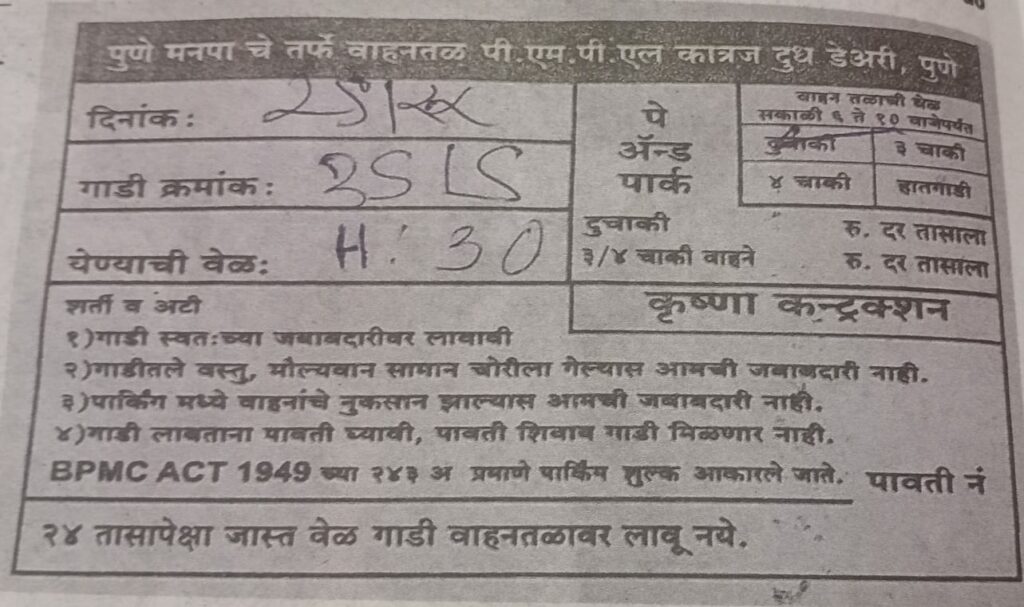 पुणे मनपा चे तर्फे वाहनतळ पी.एम.पी.एल कात्रज दुध डेअरी, पुणे
दिनांक:
गाडी क्रमांक:
येण्याची वेळ: 11:30
पे
ॲन्ड
पार्क
वाहन तळाची वेळ
सकाळी ६ ते १० वाजेपर्यंत
दुचाकी ३ चाकी
४ चाकी हातगाडी
दुचाकी रु. दर तासाला
३/४ चाकी वाहने रु. दर तासाला
कृष्णा कन्ट्रक्शन
शर्ती व अटी
१)गाडी स्वतःच्या जबाबदारीवर लावावी
२)गाडीतले वस्तु, मौल्यवान सामान चोरीला गेल्यास आमची जबाबदारी नाही.
३)पार्किंग मध्ये वाहनांचे नुकसान झाल्यास आमची जबाबदारी नाही.
४)गाडी लावताना पावती घ्यावी, पावती शिवाय गाडी मिळणार नाही.
BPMC ACT 1949 च्या २४३ अ प्रमाणे पार्किंग शुल्क आकारले जाते. पावती नं
२४ तासापेक्षा जास्त वेळ गाडी वाहनतळावर लावू नये.